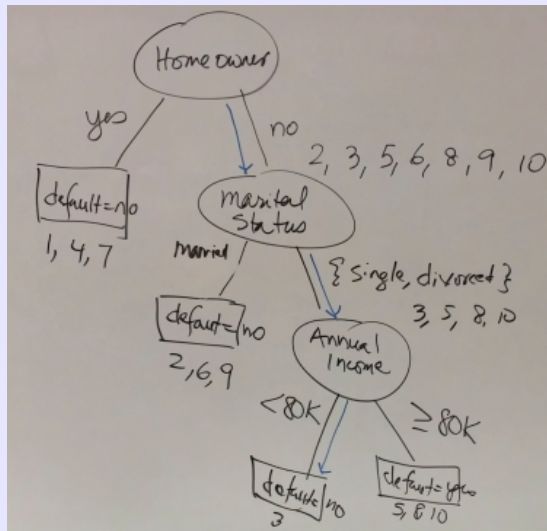 Home owner
yes
no
2, 3, 5, 6, 8, 9, 10
default=no
1, 4, 7
Marital
Status
Married
{single, divorced}
3, 5, 8, 10
default=no
2, 6, 9
Annual
Income
<80K
≥80K
default=no
3
default=yes
5, 8 10